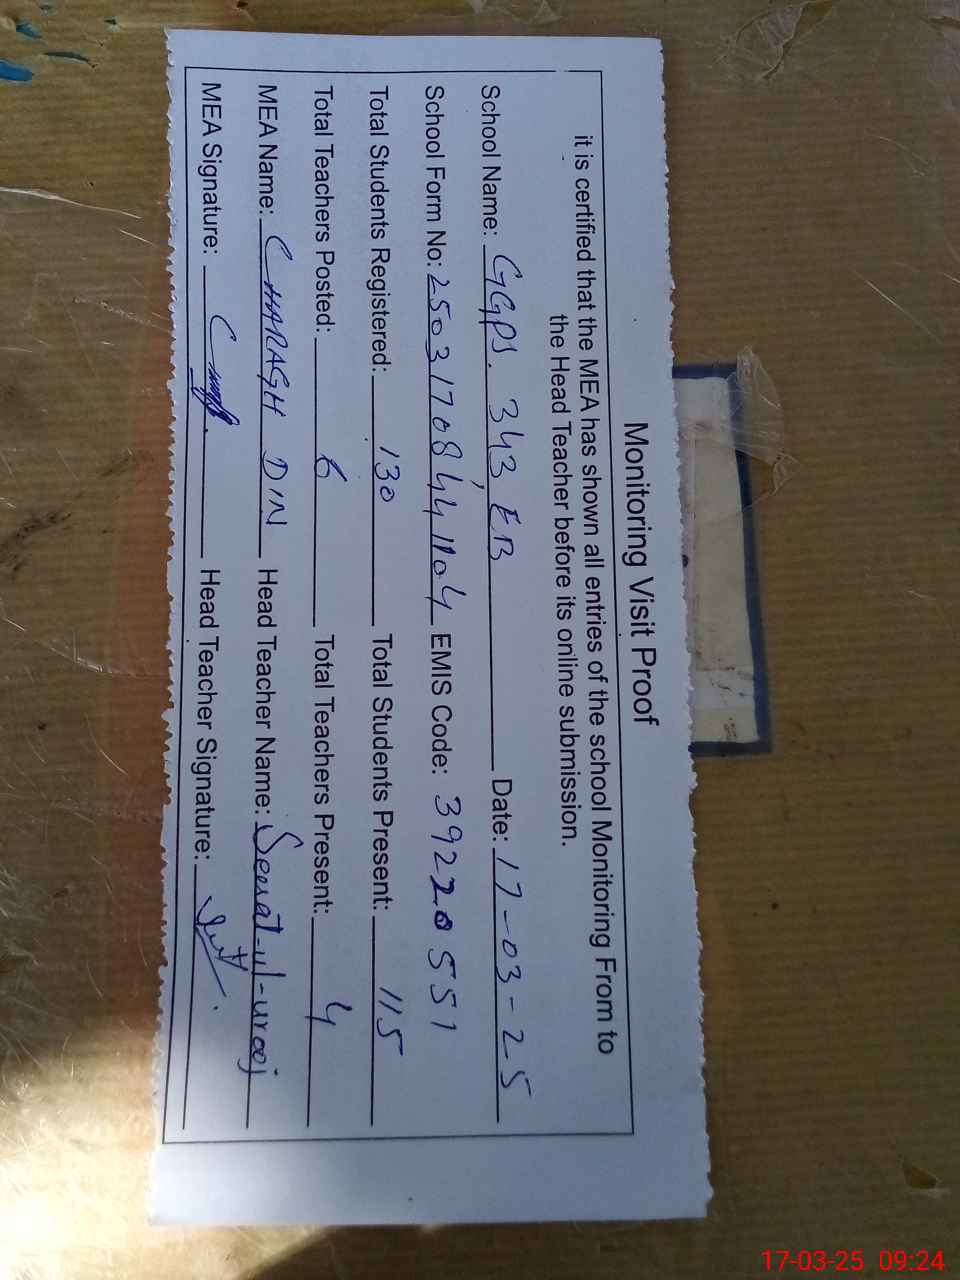 Monitoring Visit Proof
it is certified that the MEA has shown all entries of the school Monitoring From to
the Head Teacher before its online submission.
School Name: GGPS. 343, EB Date: 17-03-25
School Form No: 25031708441104 EMIS Code: 39220551
Total Students Registered: 130 Total Students Present: 115
Total Teachers Posted: 6 Total Teachers Present: 4
MEA Name: CHARAGH DIN Head Teacher Name: Seerat-ul-urooj
MEA Signature: Head Teacher Signature:
17-03-25 09:24